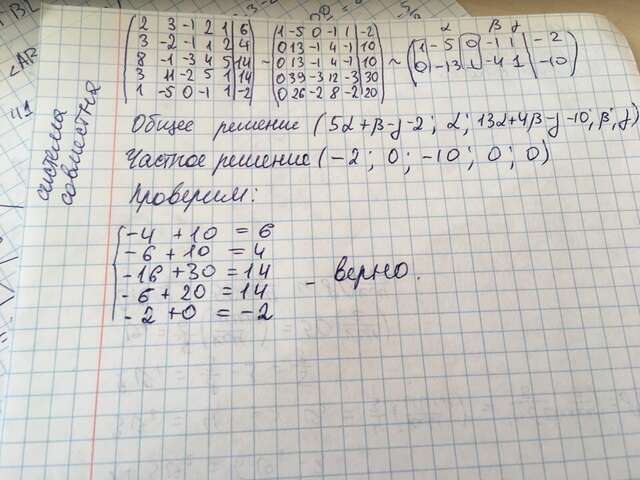 2 3 -1 2 1 | 6
3 -2 -1 1 2 | 4
8 -1 -3 4 5 | 14
3 11 -2 5 1 | 14
1 -5 0 -1 1 | -2
~
1 -5 0 -1 1 | -2
0 13 -1 4 -1 | 10
0 13 -1 4 -1 | 10
0 39 -3 12 -3 | 30
0 26 -2 8 -2 | 20
~
α β γ
1 -5 0 -1 1 | -2
0 -13 1 -4 1 | -10
система
совместна
Общее решение (5α+β-γ-2; α; 13α+4β-γ-10; β; γ)
Частное решение (-2; 0; -10; 0; 0)
Проверим:
-4 +10 = 6
-6 +10 = 4
-16 +30 = 14
-6 + 20 = 14
-2 +0 = -2
- верно.